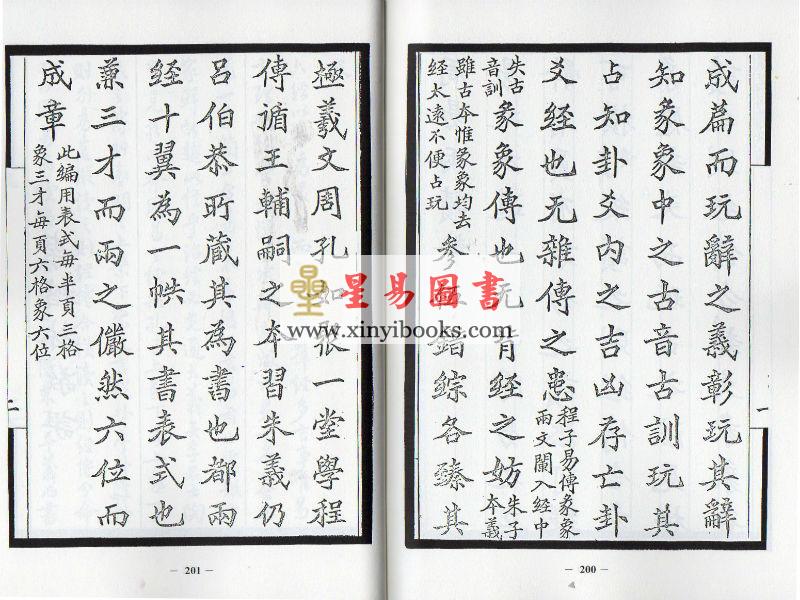 成篇而玩辭之義彰玩其辭
知彖象中之古音古訓玩其
占知卦爻內之吉凶存亡卦
爻經也无雜傳之患
程子易傳彖象
兩文闌入經中
失古
音訓
彖象傳也經之妨
朱子
本義
雖古本惟彖象均去
經太遠不便占玩
參錯綜各臻其
一
— 200 —
極羲文周孔如一堂學程
傳遁王輔嗣之本習朱義仍
呂伯恭所藏其為書也都兩
經十翼為一帙其書表式也
兼三才而兩之儼然六位而
成章
此編用表式每半頁三格
象三才每頁六格象六位
二
— 201 —
星易圖書
www.xinyibooks.com